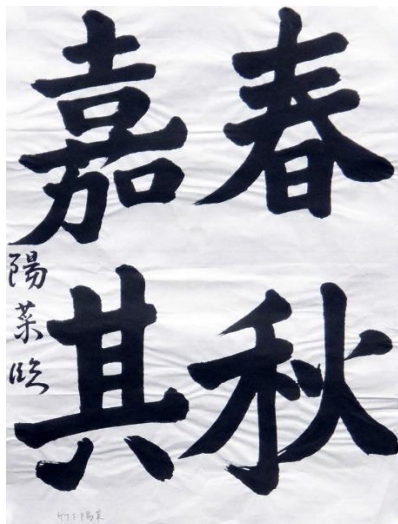 春秋
嘉其
陽菜臨